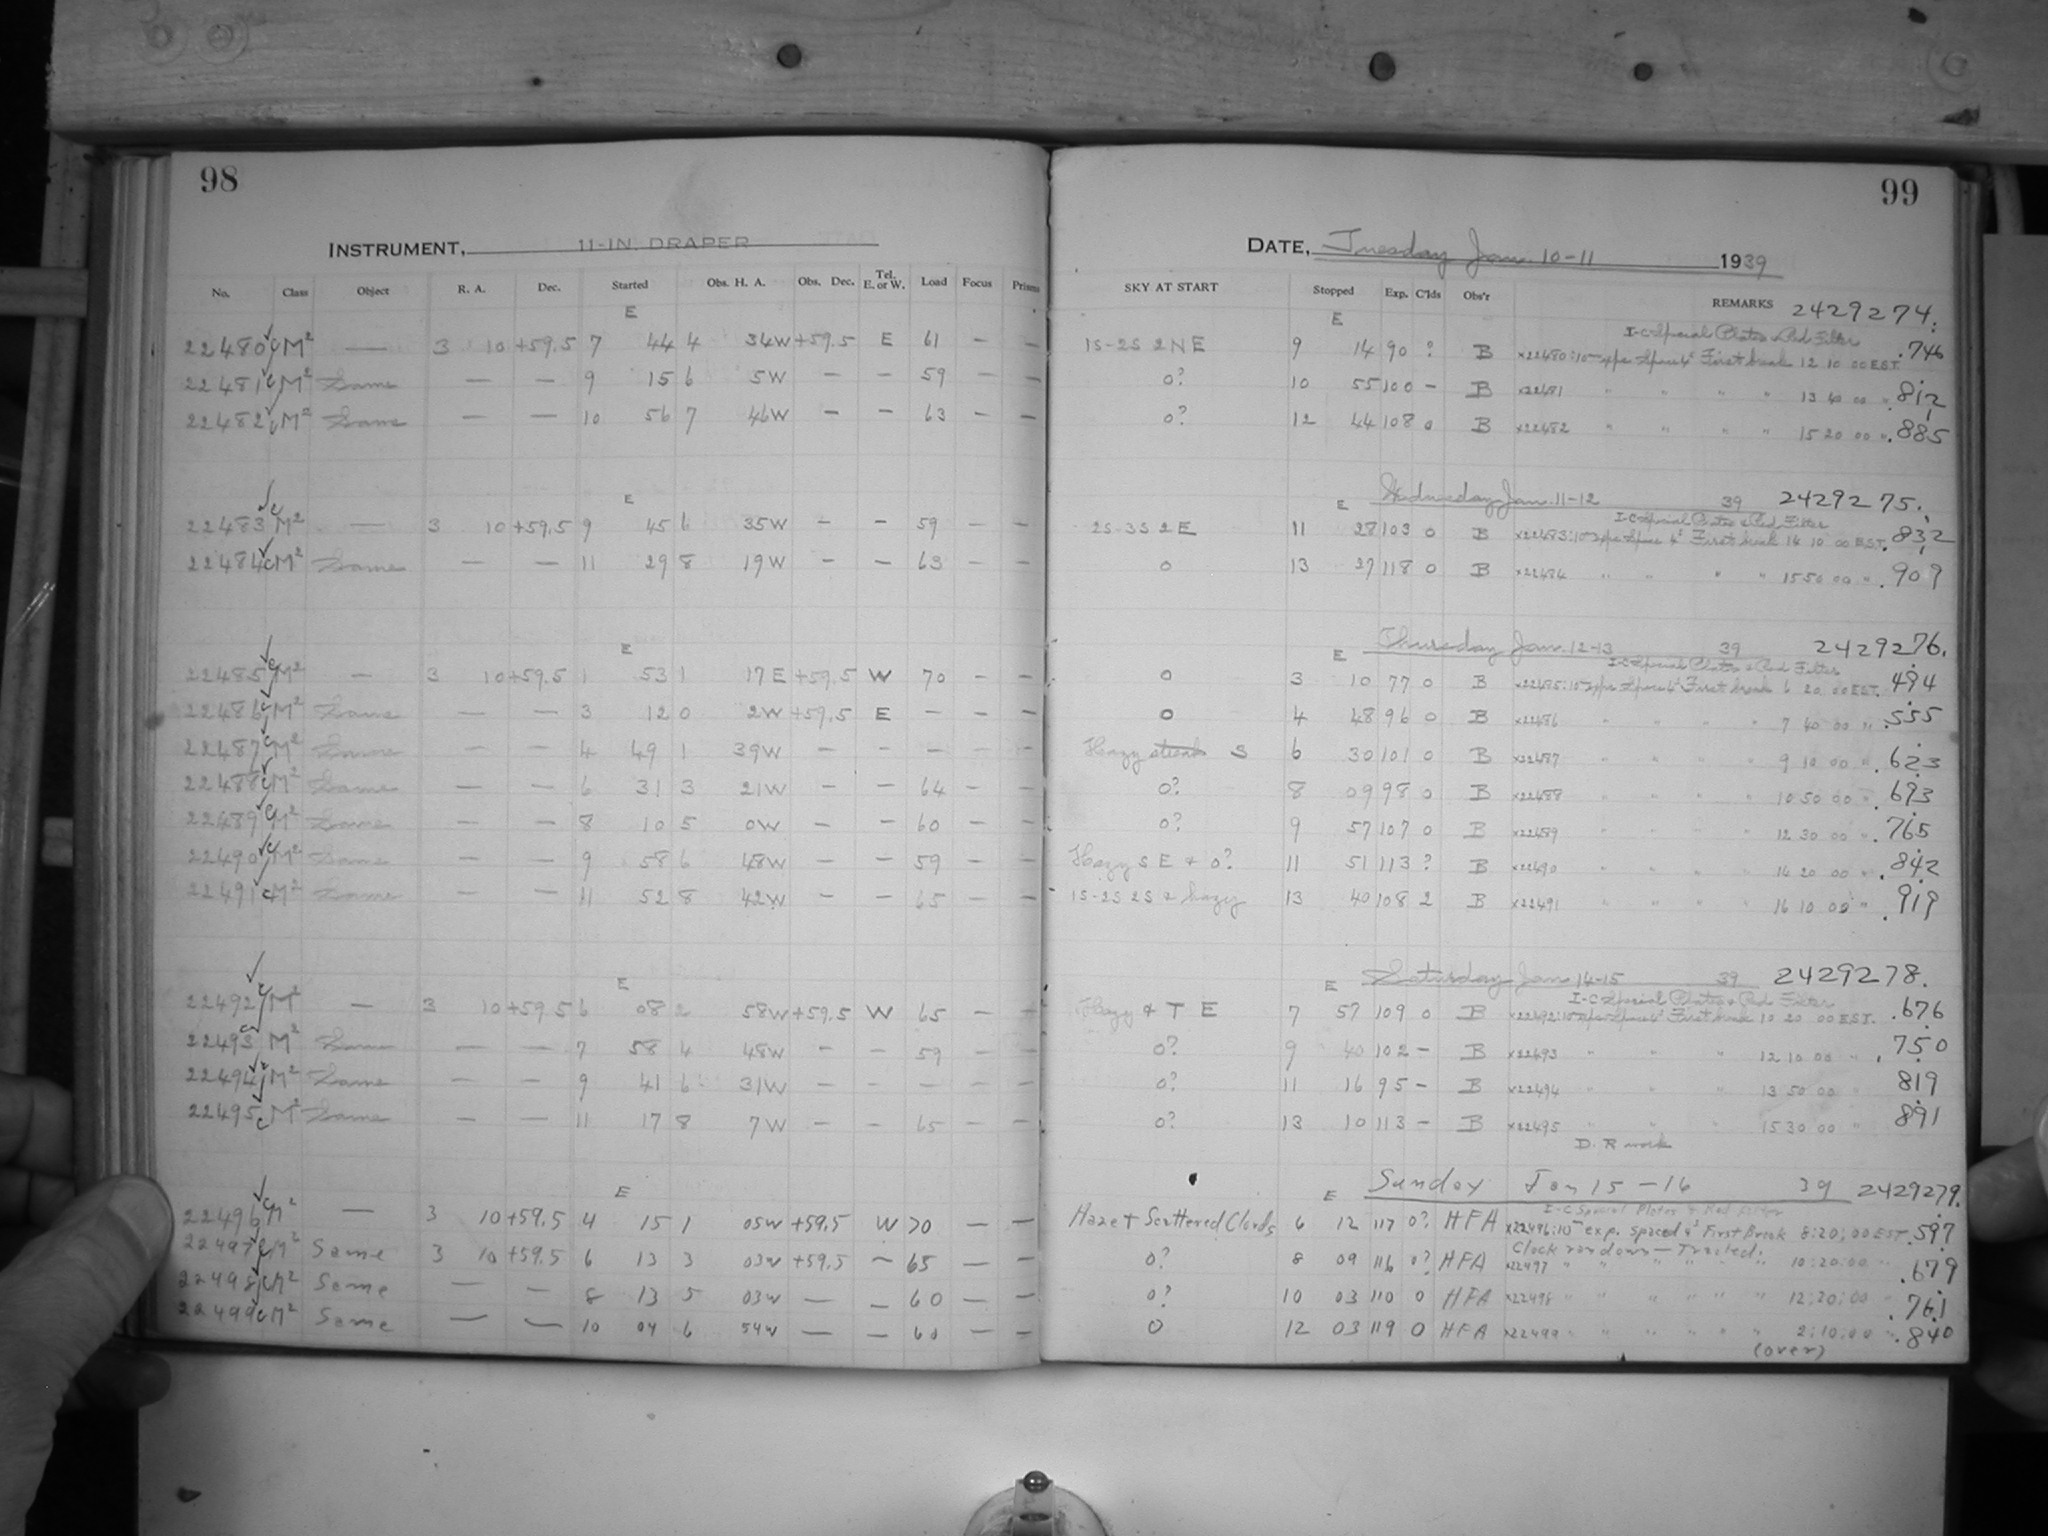 98
INSTRUMENT, 11-IN. DRAPER
No. Class Object R. A. Dec. Started Obs. H. A. Obs. Dec. Tel. E. or W. Load Focus Prisms
E
22480 c M² — 3 10 +59.5 7 44 4 34W +59.5 E 61 — —
22481 c M² Same — — 9 15 6 5W — — 59 — —
22482 c M² Same — — 10 56 7 46W — — 63 — —
E
22483 c M² — 3 10 +59.5 9 45 6 35W — — 59 — —
22484 c M² Same — — 11 29 8 19W — — 63 — —
E
22485 c M² — 3 10 +59.5 1 53 1 17E +59.5 W 70 — —
22486 c M² Same — — 3 12 0 2W +59.5 E — — —
22487 c M² Same — — 4 49 1 39W — — — — —
22488 c M² Same — — 6 31 3 21W — — 64 — —
22489 c M² Same — — 8 10 5 0W — — 60 — —
22490 c M² Same — — 9 58 6 48W — — 59 — —
22491 c M² Same — — 11 52 8 42W — — 65 — —
E
22492 c M² — 3 10 +59.5 6 08 2 58W +59.5 W 65 — —
22493 c M² Same — — 7 58 4 48W — — 59 — —
22494 c M² Same — — 9 41 6 31W — — — — —
22495 c M² Same — — 11 17 8 7W — — 65 — —
E
22496 c M² — 3 10 +59.5 4 15 1 05W +59.5 W 70 — —
22497 c M² Same 3 10 +59.5 6 13 3 03W +59.5 — 65 — —
22498 c M² Same — — 8 13 5 03W — — 60 — —
22499 c M² Same — — 10 04 6 54W — — 60 — —
99
DATE, Tuesday Jan. 10-11 1939
SKY AT START Stopped Exp. C'lds Obs'r REMARKS 2429274.
E I-C Special Plates & Red Filter
1S-2S 2NE 9 14 90 ? B x22480:10ᵐ exps Space 4ˢ First break 12 10 00 EST. .746
0? 10 55 100 - B x22481 " " " " 13 40 00 " .812
0? 12 44 108 0 B x22482 " " " " 15 20 00 " .885
E Wednesday Jan. 11-12 39 2429275.
I-C Special Plates & Red Filter
2S-3S 2E 11 28 103 0 B x22483:10ᵐ exps Space 4ˢ First break 14 10 00 EST. .832
0 13 27 118 0 B x22484 " " " " 15 50 00 " .909
E Thursday Jan. 12-13 39 2429276.
I-C Special Plates & Red Filter
0 3 10 77 0 B x22485:10ᵐ exps Space 4ˢ First break 6 20 00 EST. .494
0 4 48 96 0 B x22486 " " " " 7 40 00 " .555
Hazy streak S 6 30 101 0 B x22487 " " " " 9 10 00 " .623
0? 8 09 98 0 B x22488 " " " " 10 50 00 " .693
0? 9 57 107 0 B x22489 " " " " 12 30 00 " .765
Hazy S E & 0? 11 51 113 ? B x22490 " " " " 14 20 00 " .842
1S-2S 2S & hazy 13 40 108 2 B x22491 " " " " 16 10 00 " .919
E Saturday Jan. 14-15 39 2429278.
I-C Special Plates & Red Filter
Hazy & T E 7 57 109 0 B x22492:10ᵐ exps Space 4ˢ First break 10 20 00 EST. .676
0? 9 40 102 - B x22493 " " " 12 10 00 " .750
0? 11 16 95 - B x22494 " " " 13 50 00 " 819
0? 13 10 113 - B x22495 " " " 15 30 00 " 891
D. R work
E Sunday Jan 15-16 39 2429279.
I-C Special Plates & Red Filter
Haze + Scattered Clouds 6 12 117 0? HFA x22496:10ᵐ exp. spaced 4ˢ First Break 8:20:00 EST .597
Clock ran down — Trailed.
0? 8 09 116 0? HFA x22497 " " " " " " 10:20:00 " .679
0? 10 03 110 0 HFA x22498 " " " " " " 12:20:00 " .761
0 12 03 119 0 HFA x22499 " " " " " " 2:10:00 " .840
(over)